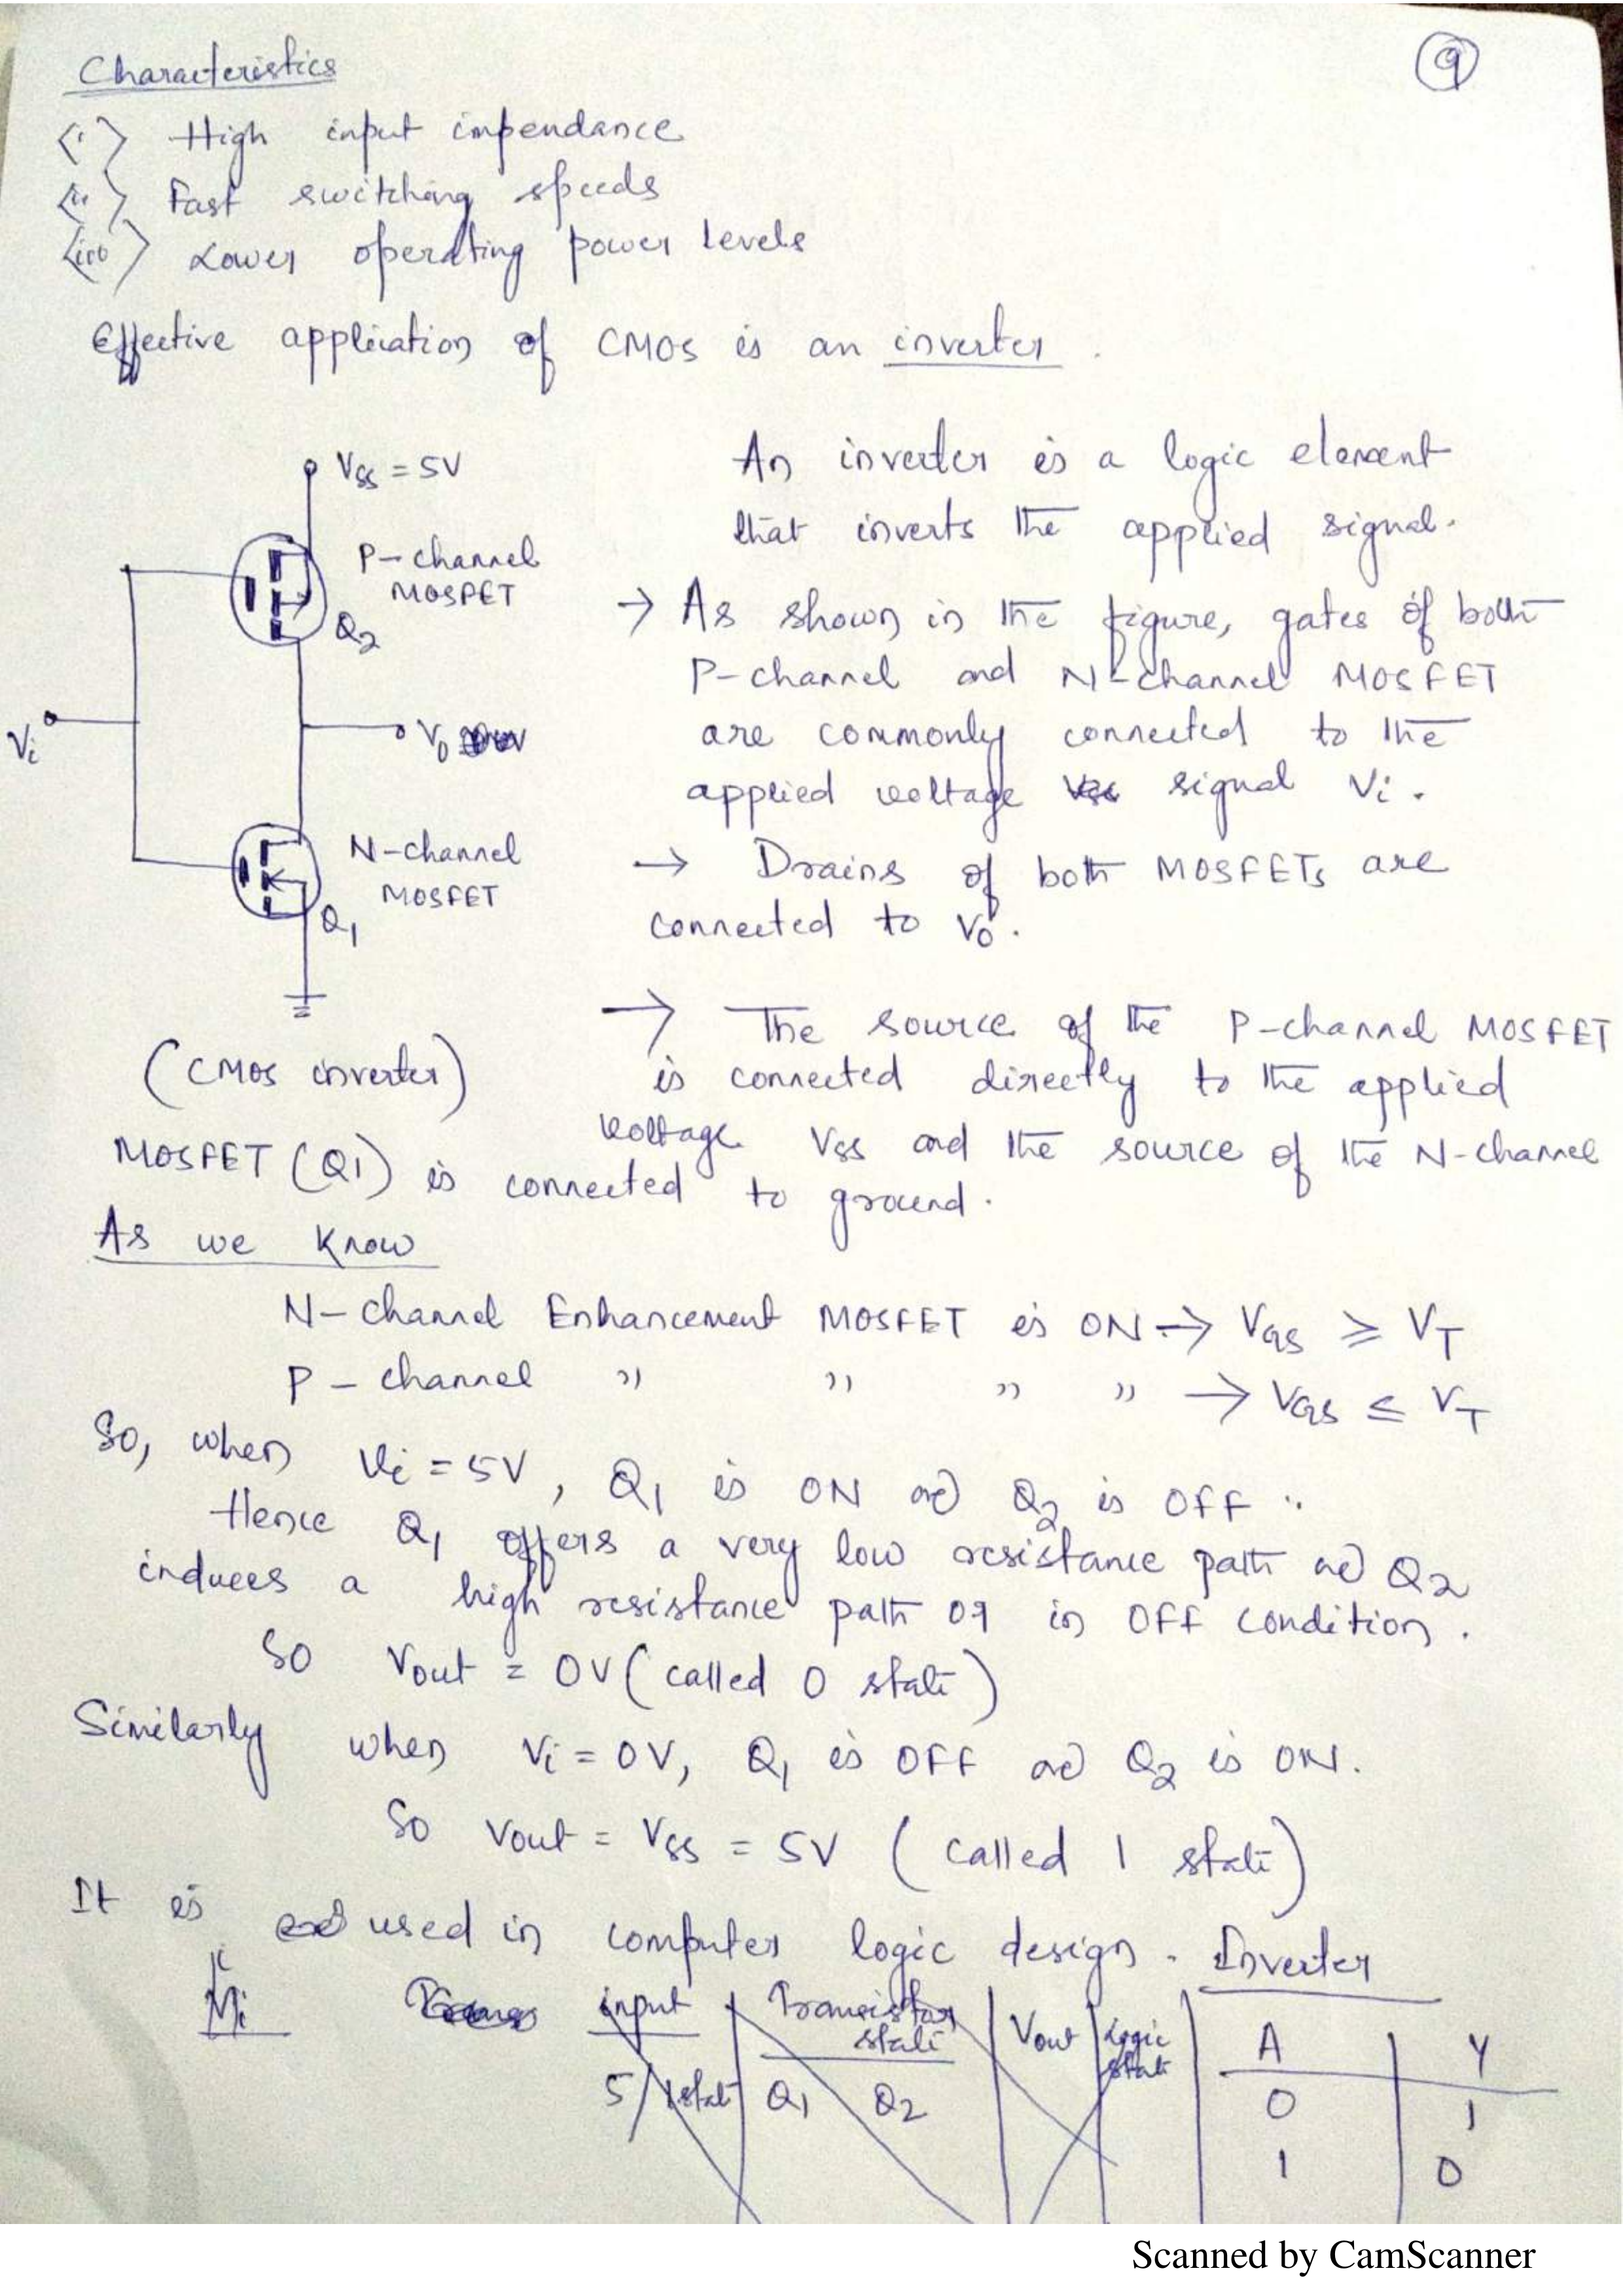 9
Characteristics
<i> High input impendance
<ii> Fast switching speeds
<iii> Lower operating power levels
Effective application of CMOS is an inverter.
VSS = 5V
P-channel
MOSFET
Q2
Vi
V0
N-channel
MOSFET
Q1
(CMOS inverter)
An inverter is a logic element
that inverts the applied signal.
→ As shown in the figure, gates of both
P-channel and N-channel MOSFET
are commonly connected to the
applied voltage signal Vi.
→ Drains of both MOSFETs are
connected to V0.
→ The source of the P-channel MOSFET
is connected directly to the applied
voltage VSS and the source of the N-channel
MOSFET (Q1) is connected to ground.
As we know
N-channel Enhancement MOSFET is ON → VGS ≥ VT
P-channel " " " " → VGS ≤ VT
So, when Vi = 5V, Q1 is ON and Q2 is OFF.
Hence Q1 offers a very low resistance path and Q2
induces a high resistance path or in OFF condition.
So Vout = 0V (called 0 state)
Similarly when Vi = 0V, Q1 is OFF and Q2 is ON.
So Vout = VSS = 5V (called 1 state)
It is used in computer logic design. Inverter
input Transistor state Vout Logic state
5/1 state Q1 Q2
A Y
0 1
1 0
Scanned by CamScanner